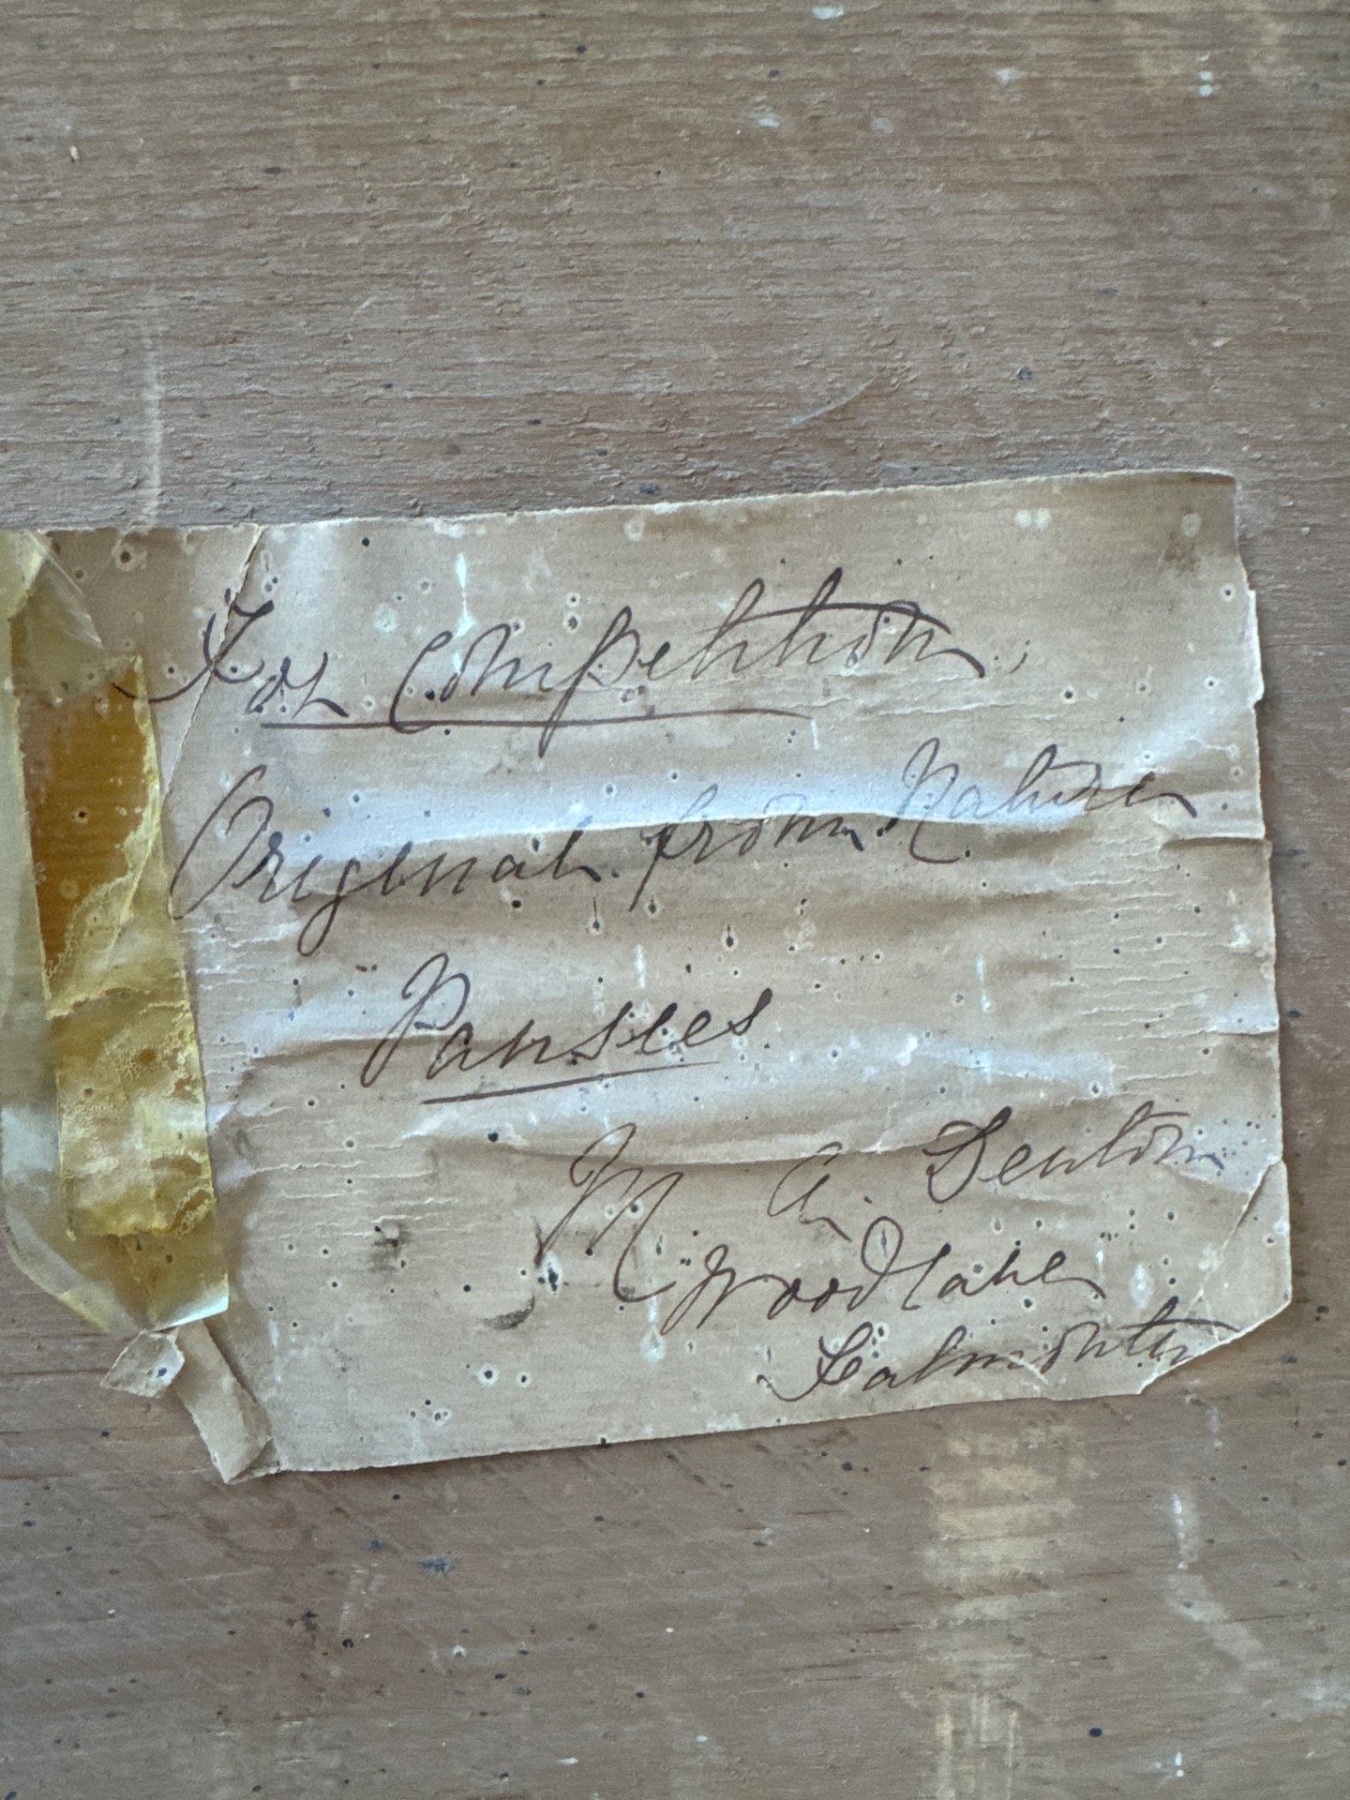 For Competition
Original from Nature
Pansies
M A. Denton
"Woodlane
Falmouth